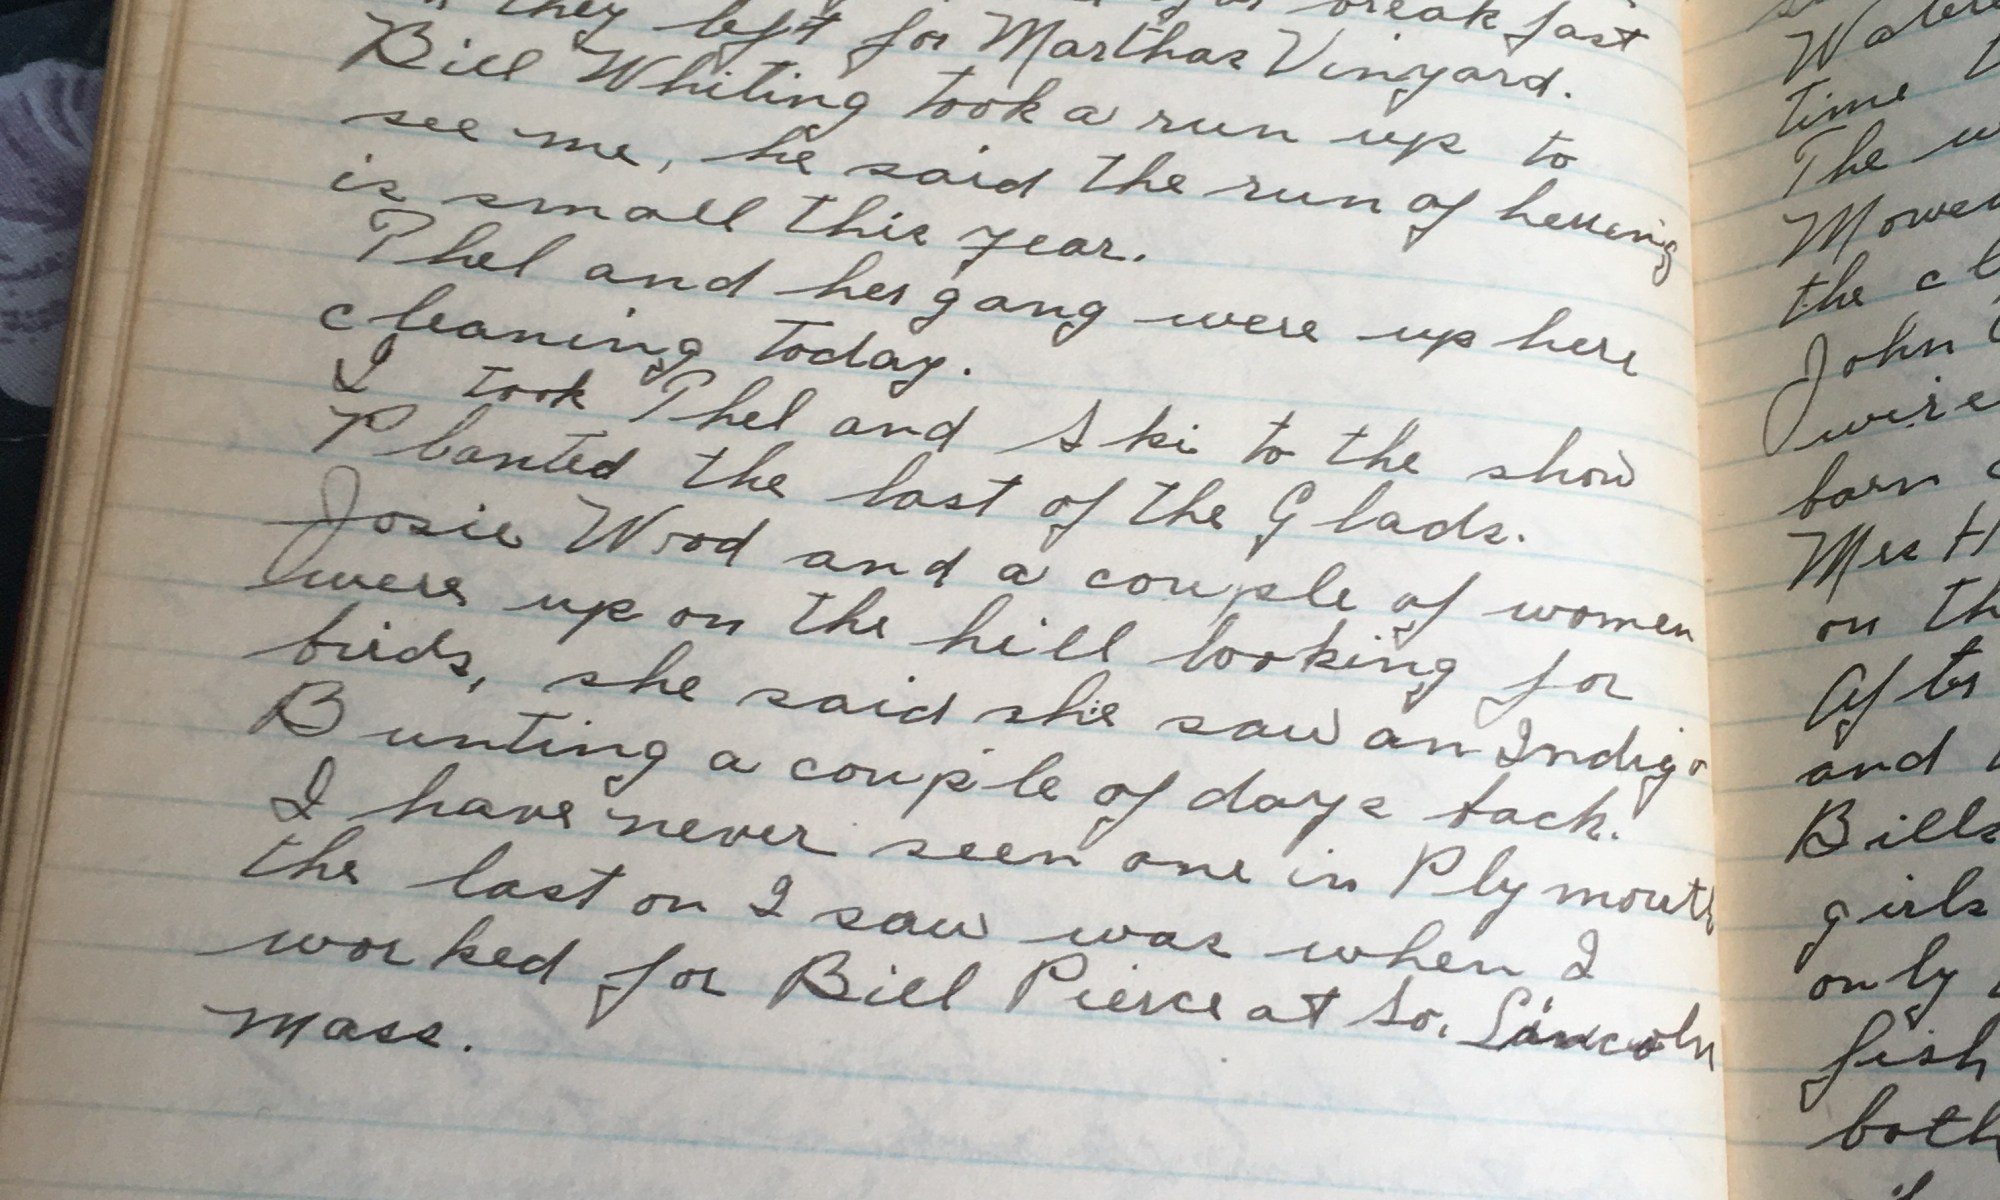 they left for breakfast
for Marthas Vinyard.
Bill Whiting took a run up to
see me, he said the run of herring
is small this year.
Phel and her gang were up here
cleaning today.
I took Phel and Ski to the show
Planted the last of the Glads.
Josie Wood and a couple of women
were up on the hill looking for
birds, she said she saw an Indigo
Bunting a couple of days back.
I have never seen one in Plymouth
the last on I saw was when I
worked for Bill Pierce at So. Lincoln
Mass.
time
The
the
John
wire
barn
Mrs H
on
After
and
Bills
girls
only
fish
both